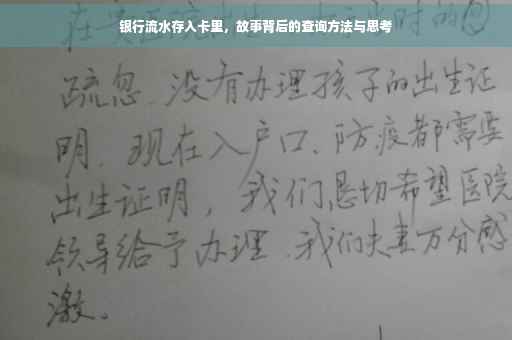 银行流水存入卡里，故事背后的查询方法与思考
疏忽、没有办理孩子的出生证
明、现在入户口、防疫都需要
出生证明，我们恳切希望医院
领导给予办理、我们夫妻万分感
激。